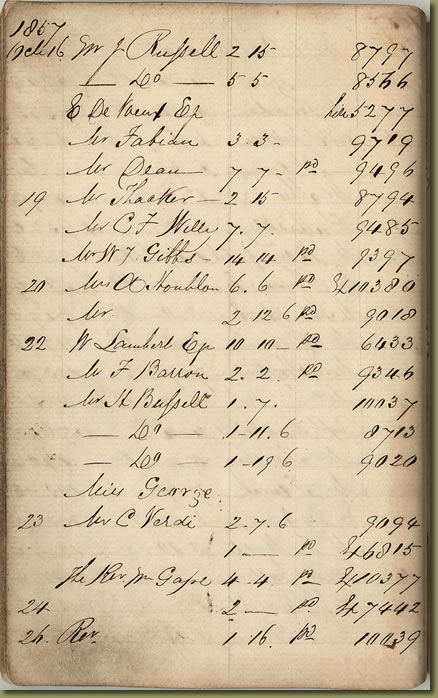 1857
Octr 16 Mr J Russell 2 15 8797
— Do — 5 5 8566
E De Vaux Esq hire 5277
Mr Fabian 3.3- 9719
Mr Dean 7 7- pd 9496
19 Mr Thacker — 2 15 8794
Mr C F Willy 7.7. 9485
Mr W J Gibbs - 14 14 pd 9397
20 Mrs A Houblon 6.6 pd 10380
Mr 2 12 6 pd 9018
22 W Lambert Esq 10 10 — pd 6433
Mr F Barron 2.2. pd 9346
Mr H Bussell 1.7. 10037
— Do — 1-11.6 8713
— Do 1-19 6 9020
Miss George
23 Mr C Verdi 2-7.6 9094
1 — pd 6815
The Rev. Wm Gape 4-4 pd 10377
24 2 — pd 7442
26. Rev. 1 16. pd 10039